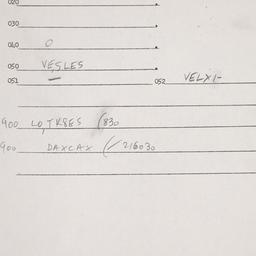 020
030
040 0
050 VESLES
051 — 052 VELXI-
900 LO,TR8ES (830
900 DAXCAX (✓ 216030